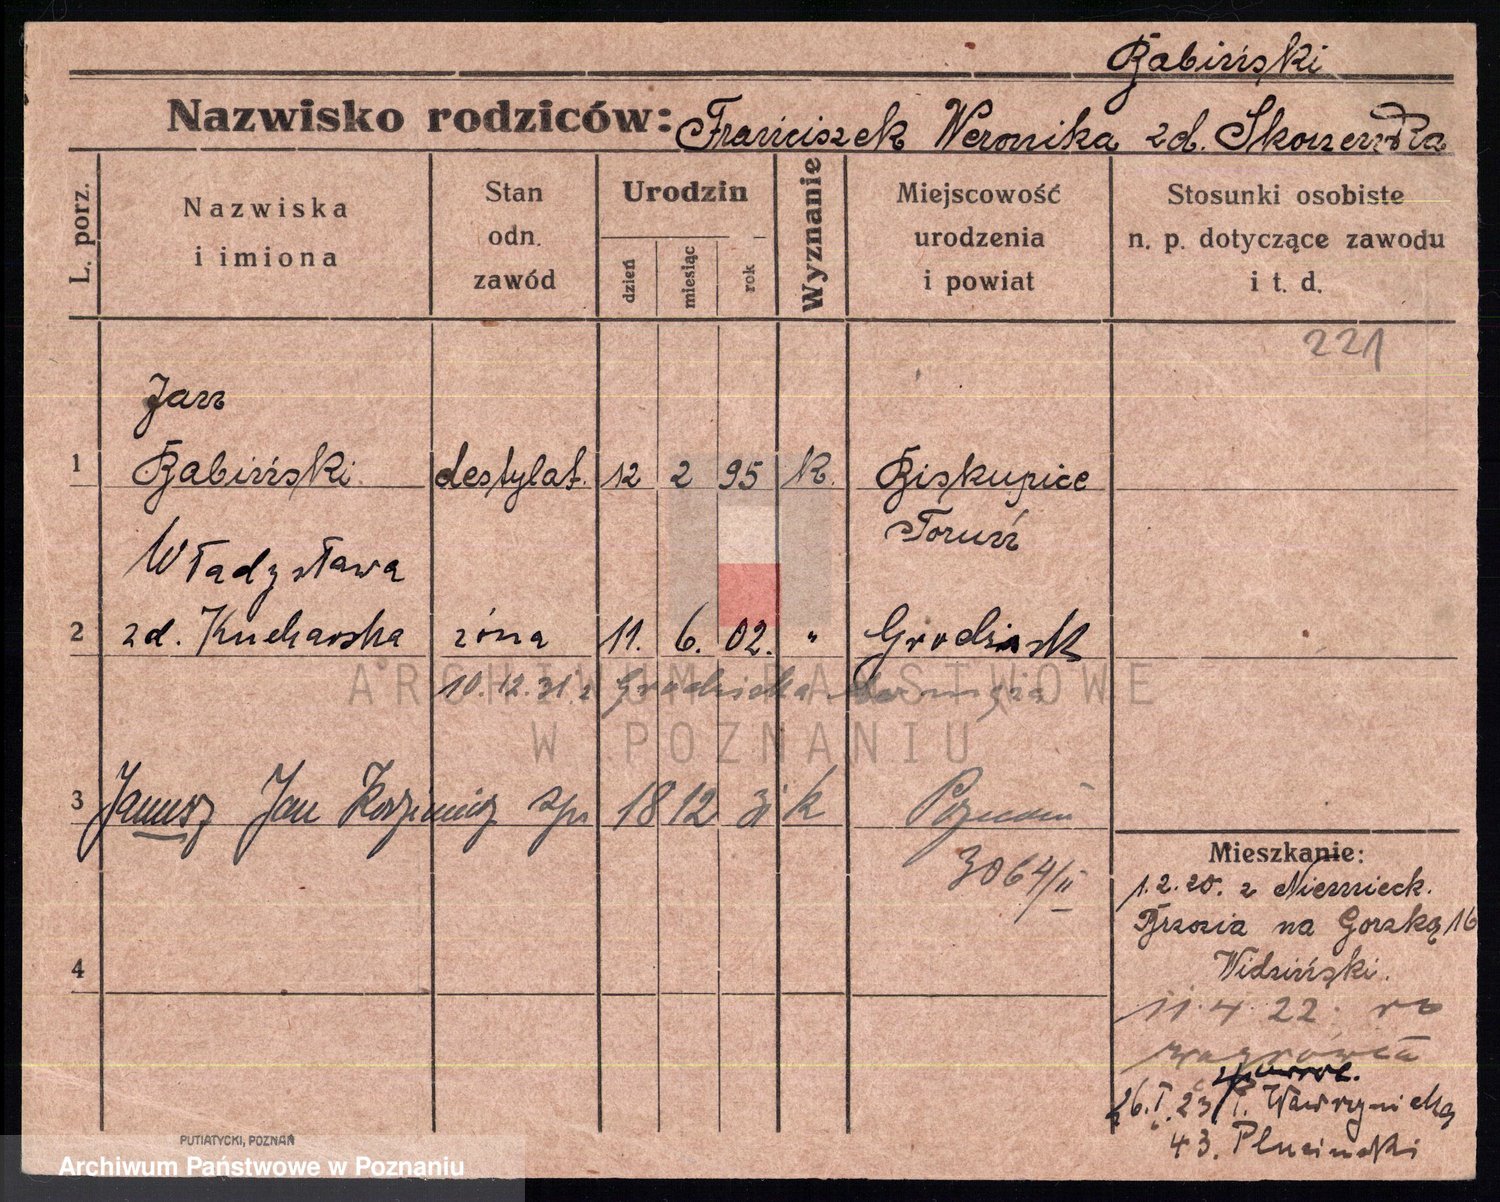 Babiński
Nazwisko rodziców: Franciszek Weronika zd. Skoczewska
L. porz.
Nazwiska
i imiona
Stan
odn.
zawód
Urodzin
dzień
miesiąc
rok
Wyznanie
Miejscowość
urodzenia
i powiat
Stosunki osobiste
n. p. dotyczące zawodu
i t. d.
221
Jan
1 Babiński destylat. 12 2 95 k. Biskupice
Toruń
Władysława
2 zd. Kucharska żona 11. 6. 02. " Grodzisk
10.12.31 z Grodziska
ARCHIWUM PAŃSTWOWE
W POZNANIU
3 Janusz Jan Kazimierz syn 18 12 31 k Poznań
3064/II
4
Mieszkanie:
1.2.20. z Niemieck.
na Gorską 16
Widziński.
11.4.22. do
26.I.23 Wawrzyniecka
43. Pluciński
PUTIATYCKI, POZNAŃ
Archiwum Państwowe w Poznaniu